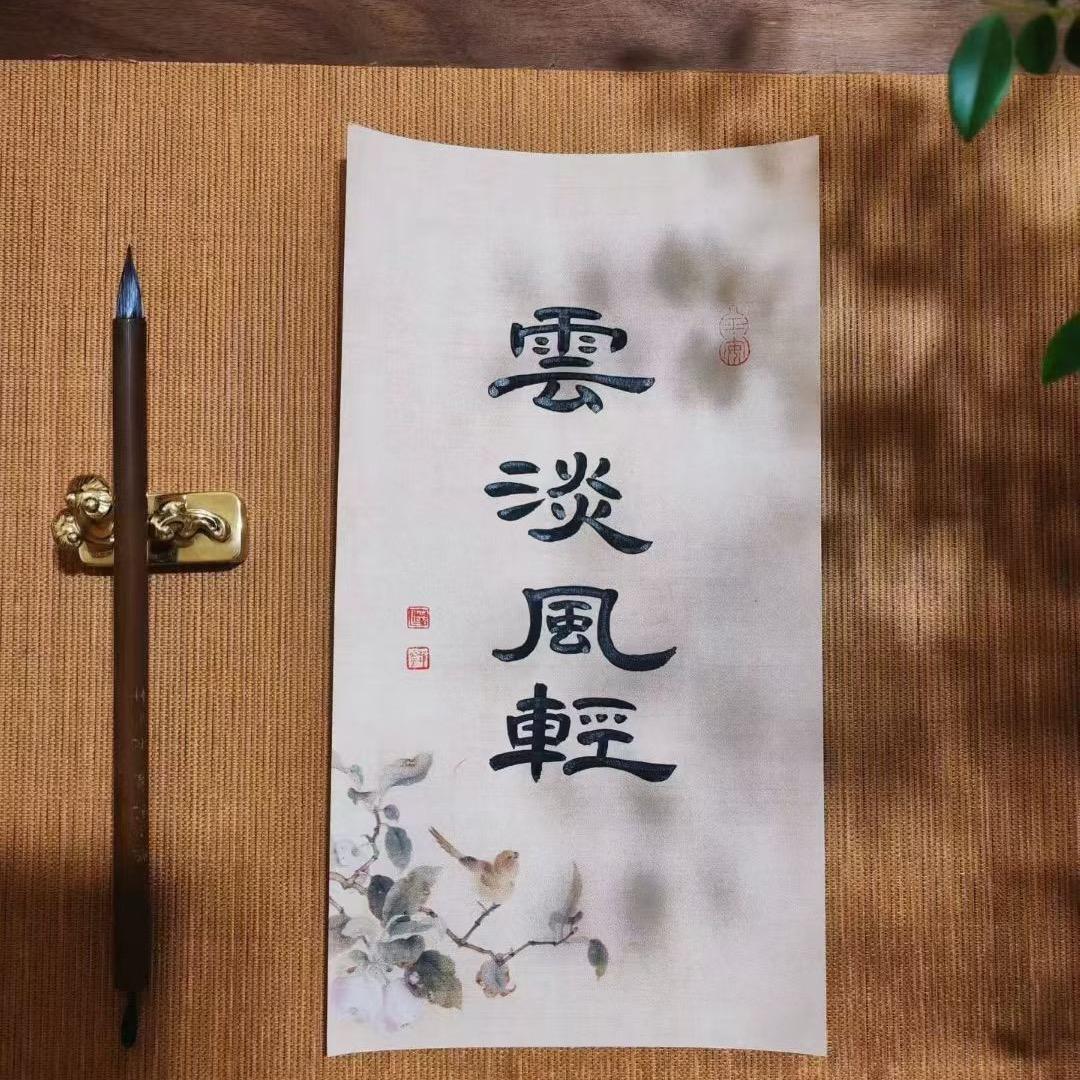 雲淡風輕